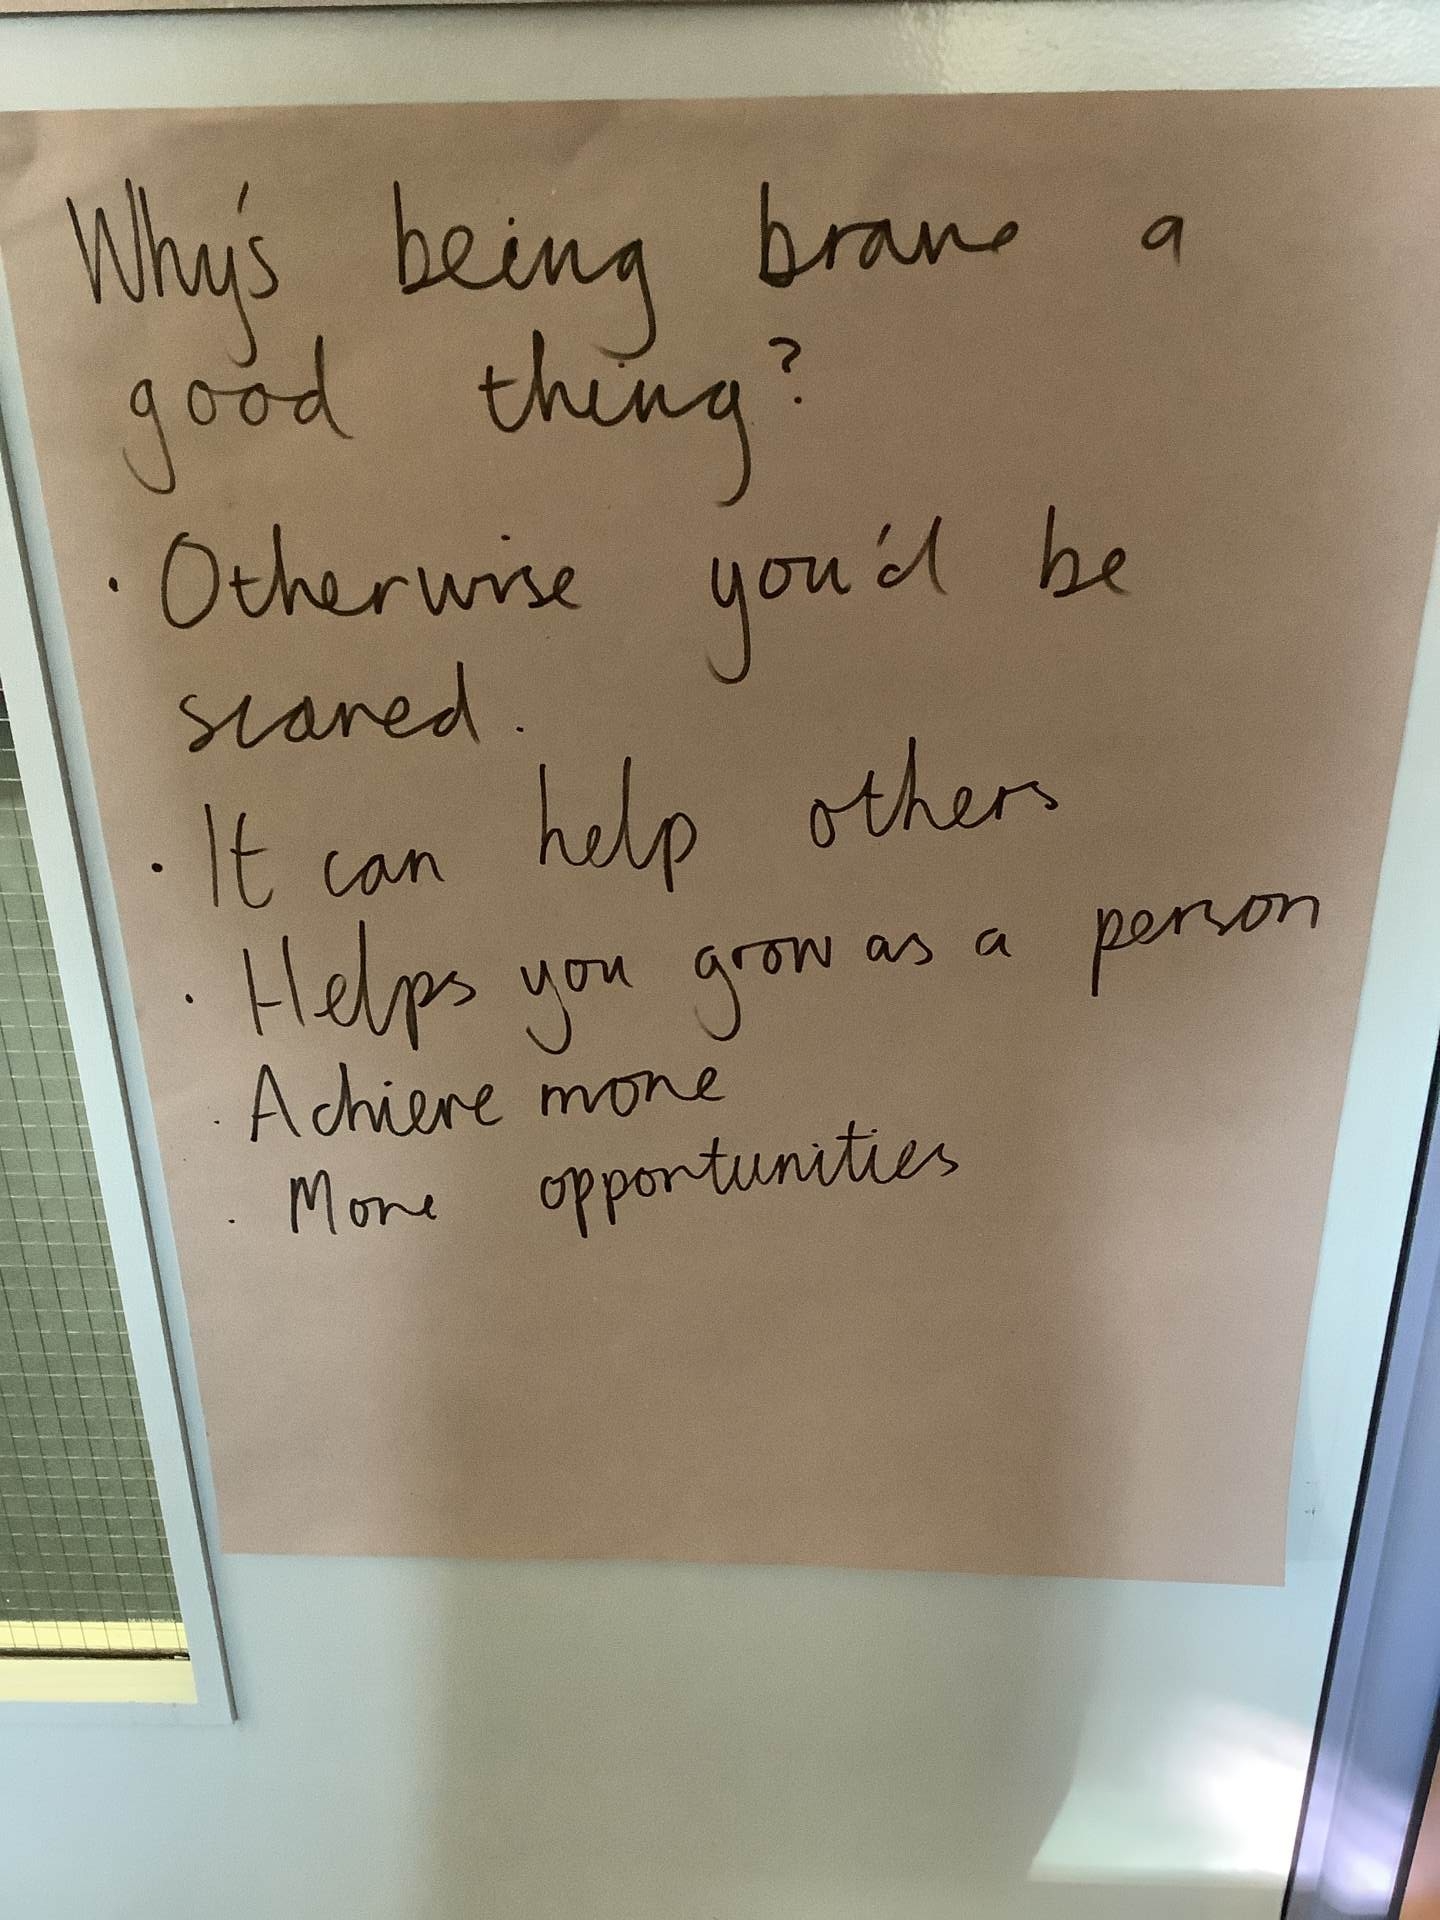 Why's being brave a
good thing?
· Otherwise you'd be
scared.
· It can help others
· Helps you grow as a person
· Achieve more
· More opportunities